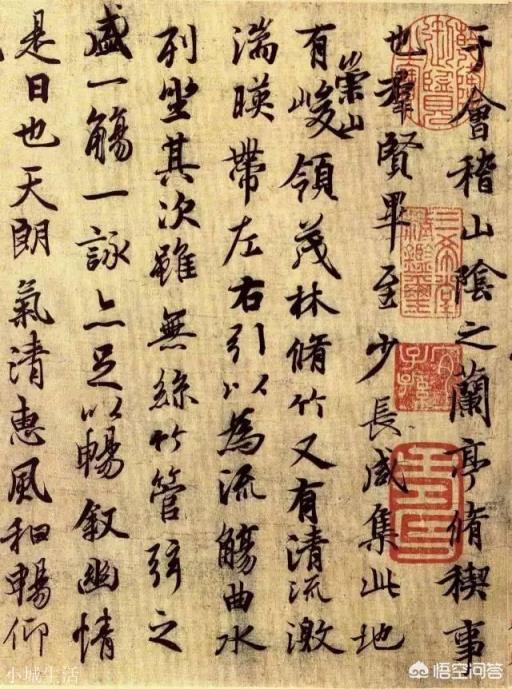 于會稽山陰之蘭亭脩稧事
也羣賢畢至少長咸集此地
有崇山峻領茂林脩竹又有清流激
湍暎帶左右引以為流觴曲水
列坐其次雖無絲竹管弦之
盛一觴一詠亦足以暢敘幽情
是日也天朗氣清惠風和暢仰
三希堂精鑑璽
宜子孫
小城生活
悟空问答